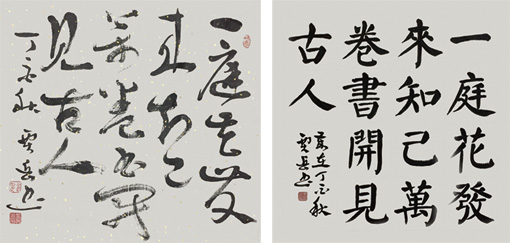 一庭花發
來知己
萬卷書開
見古人
丁亥秋
一庭花發
來知己萬
卷書開見
古人
歲在丁亥秋